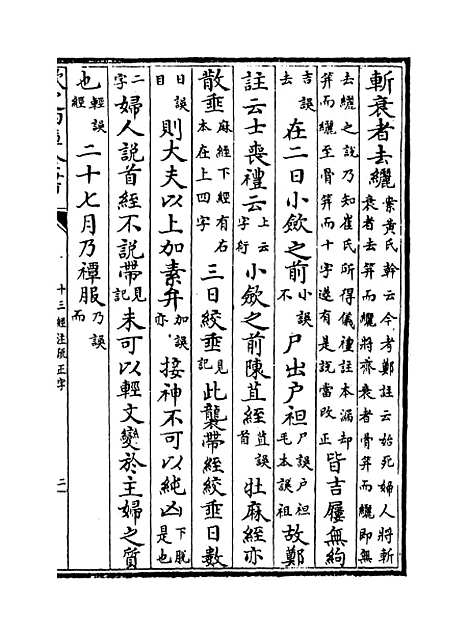 斬衰者去纚案黃氏榦云今考鄭註云始死婦人將斬
衰者去笄而纚將齊衰者骨笄而纚即無
去纚之說乃知崔氏所得儀禮註本漏却
笄而纚至骨笄而十字遂有是說當改正皆吉屨無絇
吉誤
去在二日小斂之前小誤
不尸出戶袒尸誤戶袒
毛本誤祖故鄭
註云士喪禮云上云
字衍小斂之前陳苴絰苴誤
首牡麻絰亦
散垂麻絰下經有右
本在上四字三日絞垂見
記此襲帶絰絞垂日數
日誤
目則大夫以上加素弁加誤
亦接神不可以純凶下脫
是也
二
字婦人說首絰不說帶見
記未可以輕文變於主婦之質
也輕誤
經二十七月乃禫服乃誤
而
十三經注疏正字
二